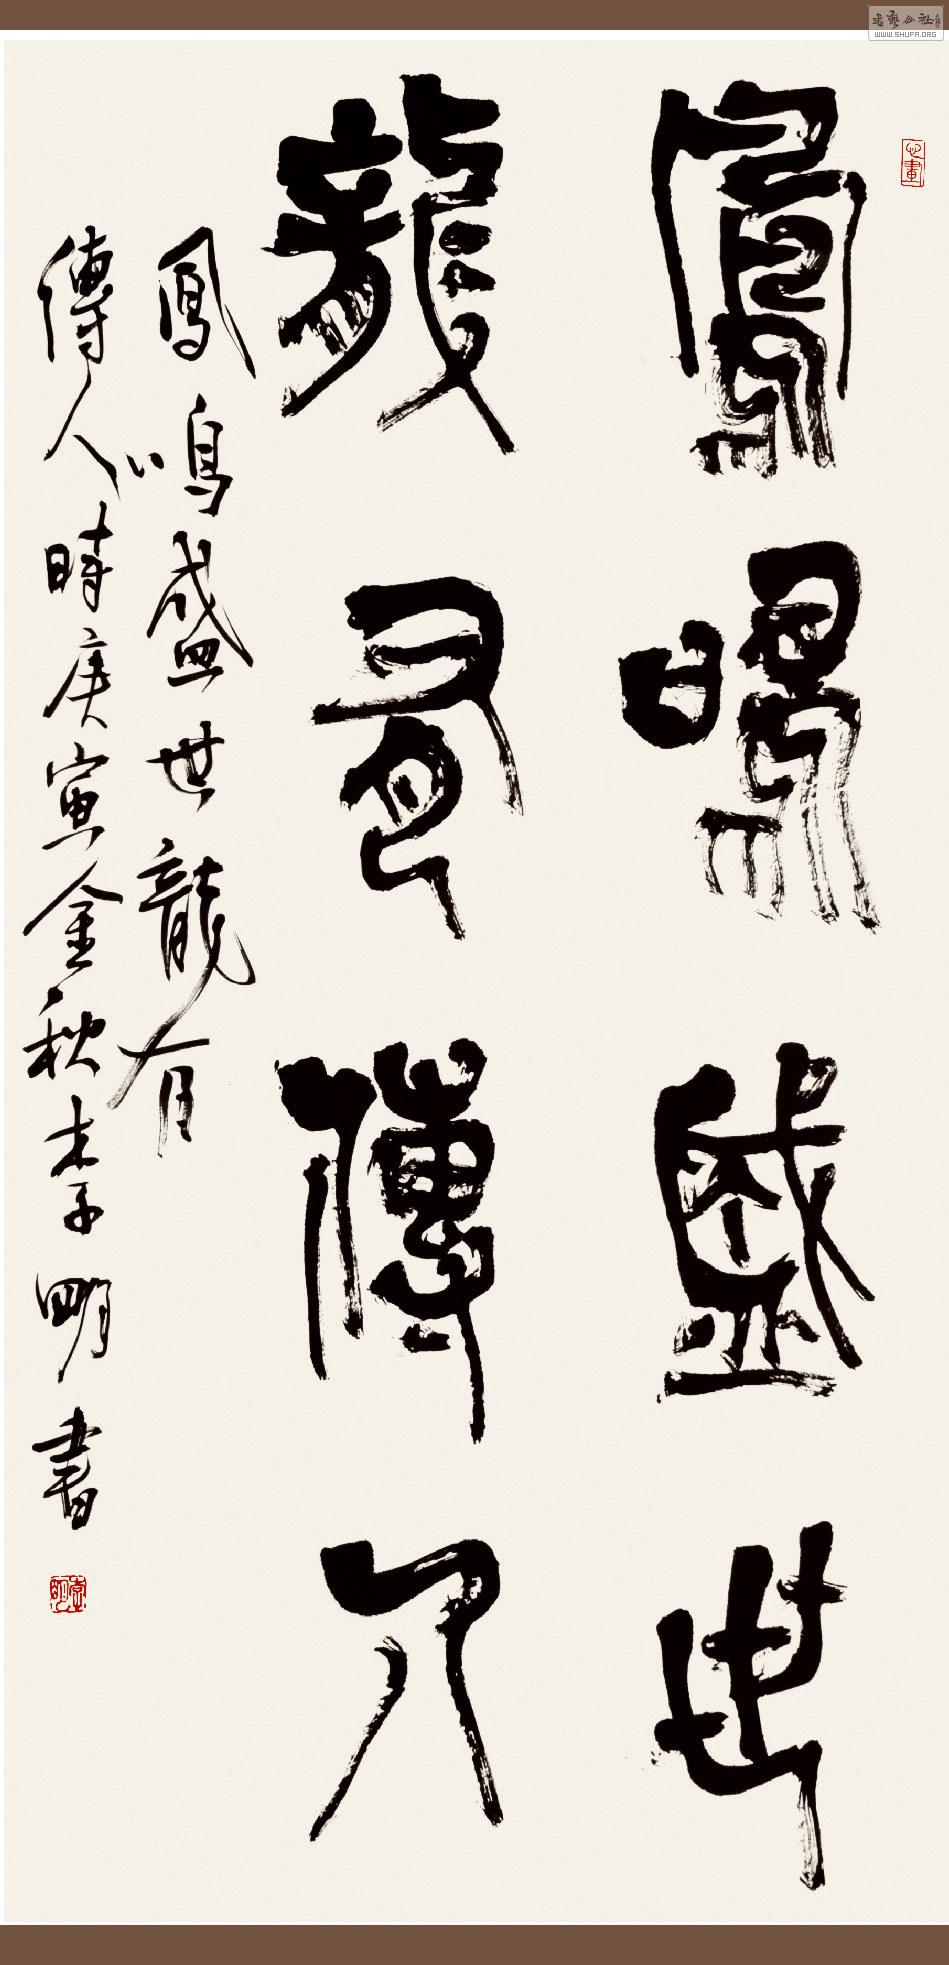 鳳鳴盛世
龍有傳人
鳳鳴盛世龍有
傳人時庚寅金秋李明書
心畫
李明
书艺公社
WWW.SHUFA.ORG